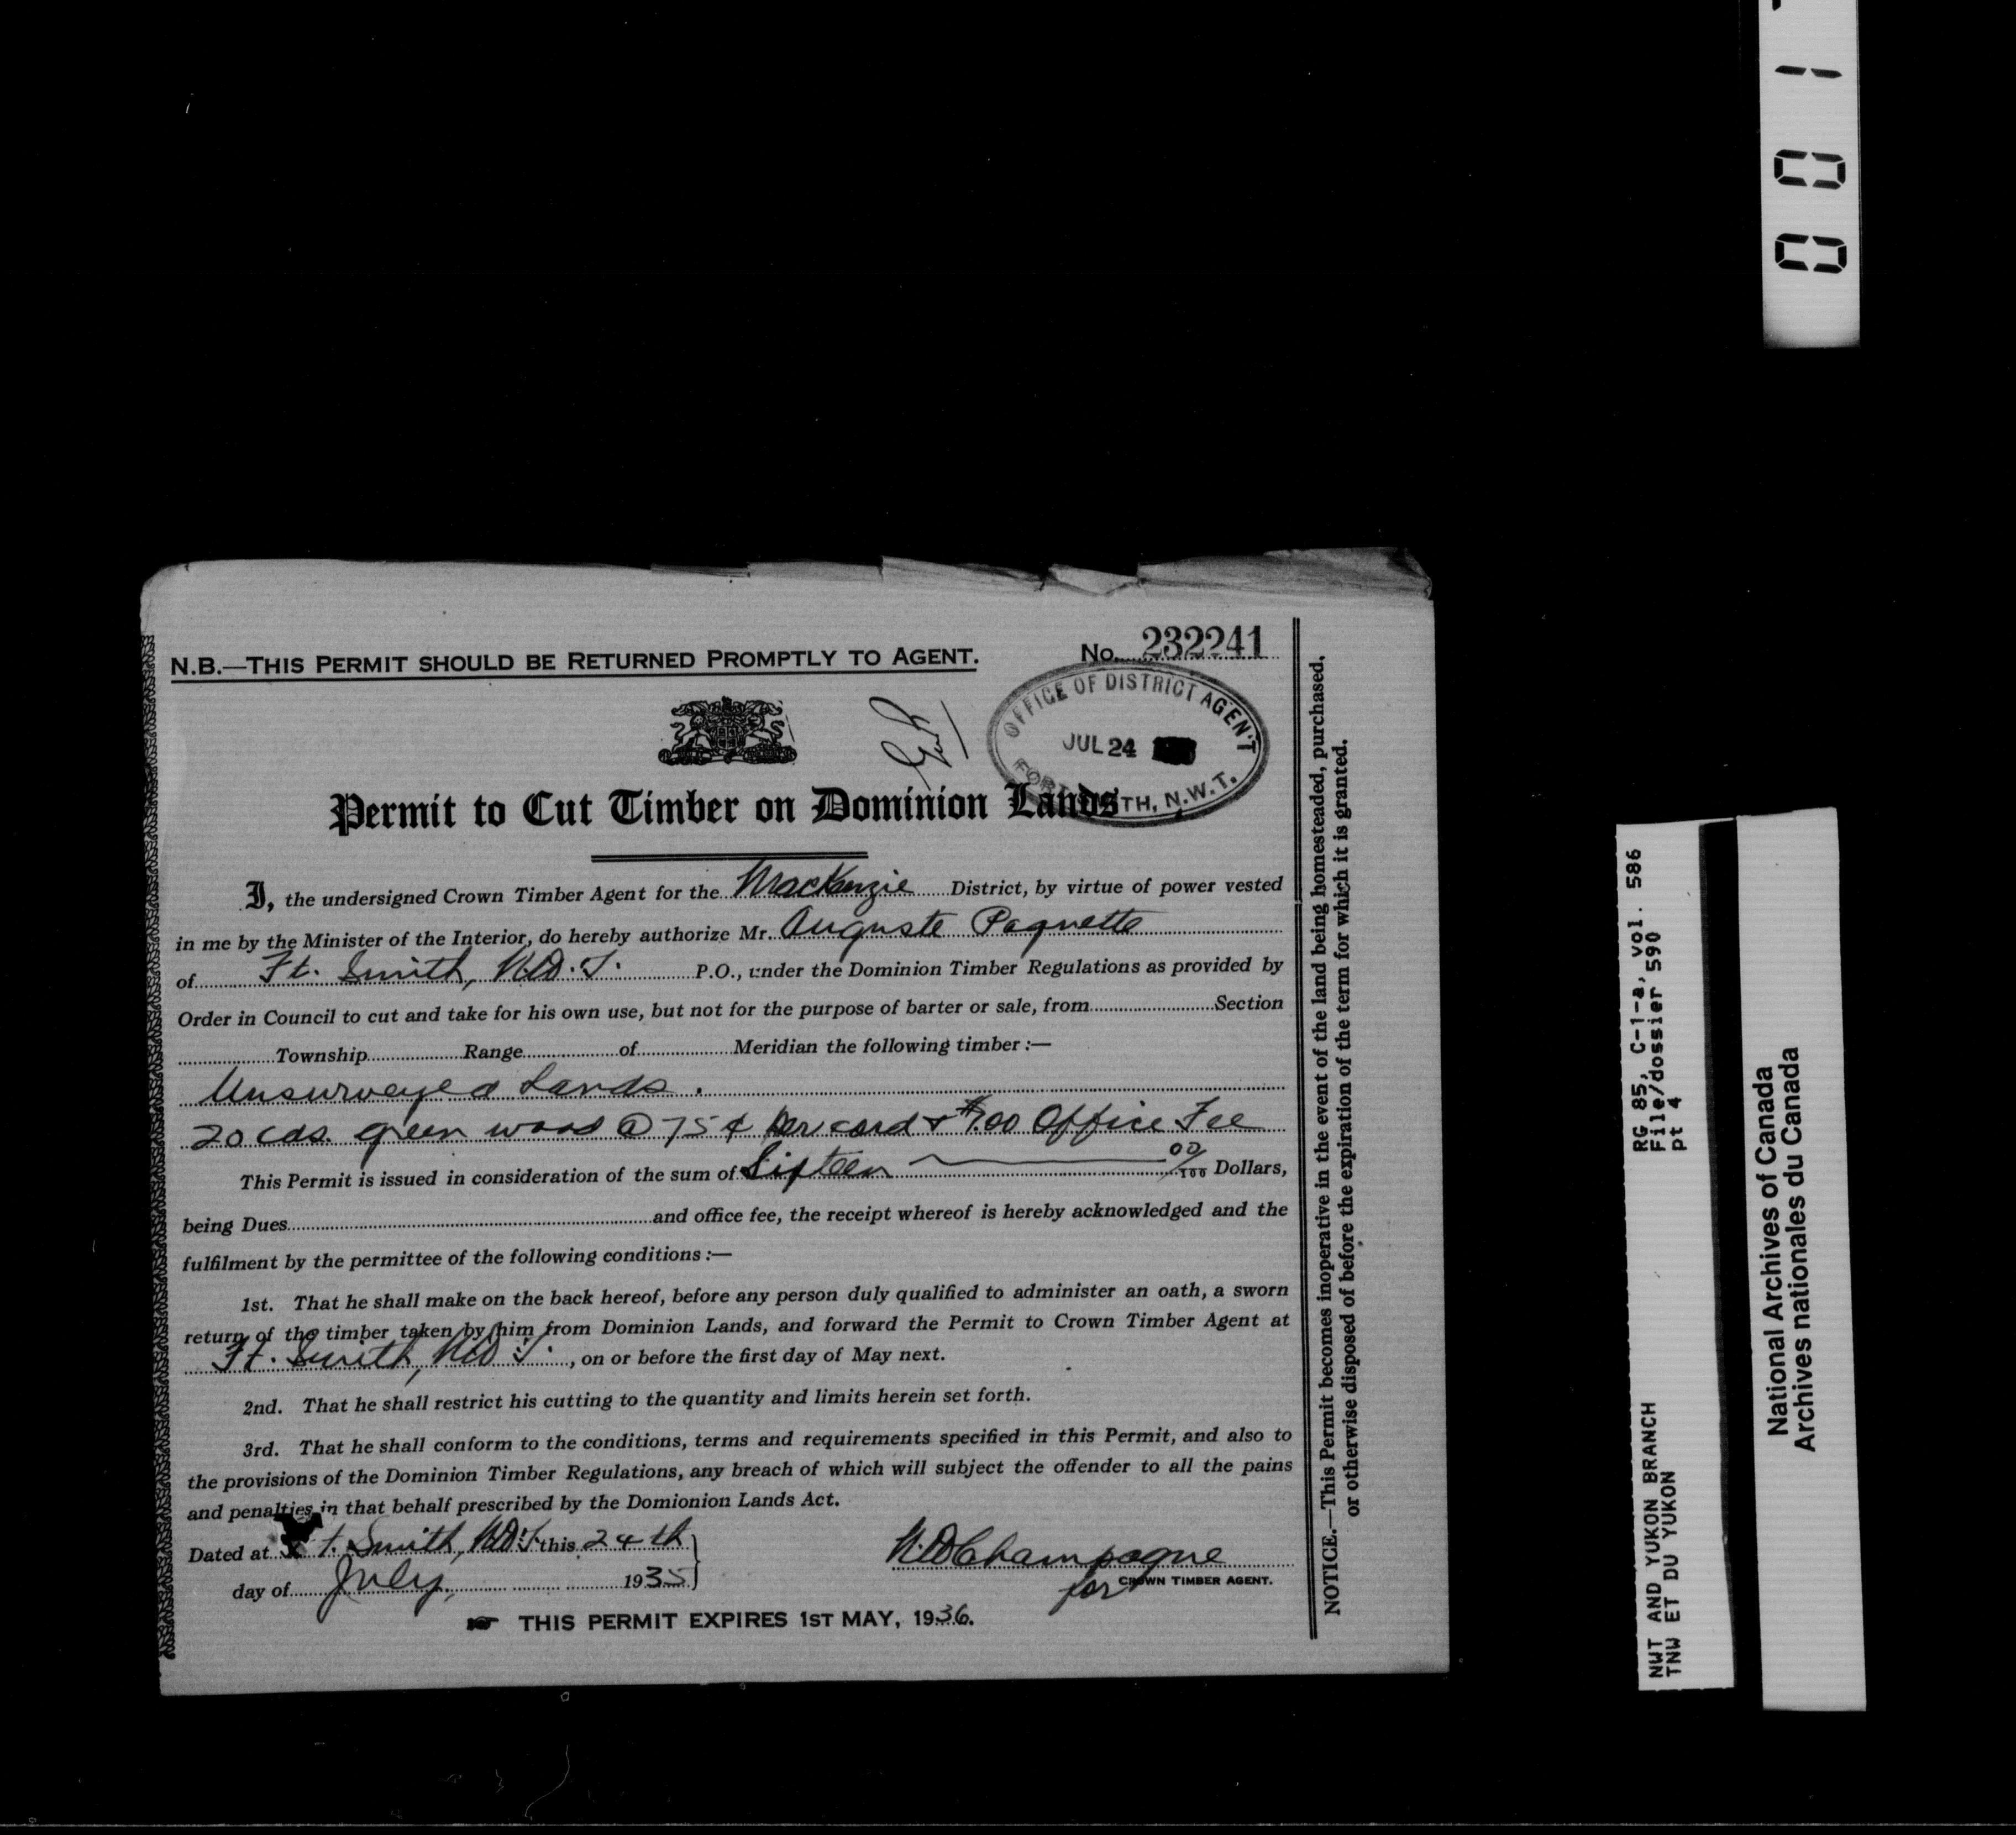 N.B.—THIS PERMIT SHOULD BE RETURNED PROMPTLY TO AGENT.
No. 232241
OFFICE OF DISTRICT AGENT
JUL 24
FORT SMITH, N.W.T.
Permit to Cut Timber on Dominion Lands
I, the undersigned Crown Timber Agent for the MacKenzie District, by virtue of power vested
in me by the Minister of the Interior, do hereby authorize Mr. Auguste Paquette
of Ft. Smith, N.W.T. P.O., under the Dominion Timber Regulations as provided by
Order in Council to cut and take for his own use, but not for the purpose of barter or sale, from Section
Township Range of Meridian the following timber :—
Unsurveyed Lands.
20 cds. green wood @ 75¢ per cord + $ Office Fee
This Permit is issued in consideration of the sum of Fifteen 00/100 Dollars,
being Dues and office fee, the receipt whereof is hereby acknowledged and the
fulfilment by the permittee of the following conditions :—
1st. That he shall make on the back hereof, before any person duly qualified to administer an oath, a sworn
return of the timber taken by him from Dominion Lands, and forward the Permit to Crown Timber Agent at
Ft. Smith, N.W.T. , on or before the first day of May next.
2nd. That he shall restrict his cutting to the quantity and limits herein set forth.
3rd. That he shall conform to the conditions, terms and requirements specified in this Permit, and also to
the provisions of the Dominion Timber Regulations, any breach of which will subject the offender to all the pains
and penalties in that behalf prescribed by the Domionion Lands Act.
Dated at Ft. Smith, N.W.T. this 24th
day of July, 1935
Champagne
for CROWN TIMBER AGENT.
THIS PERMIT EXPIRES 1ST MAY, 1936.
NOTICE.—This Permit becomes inoperative in the event of the land being homesteaded, purchased,
or otherwise disposed of before the expiration of the term for which it is granted.
RG 85, C-1-a, vol. 586
File/dossier 590
pt 4
NWT AND YUKON BRANCH
TNW ET DU YUKON
National Archives of Canada
Archives nationales du Canada
001